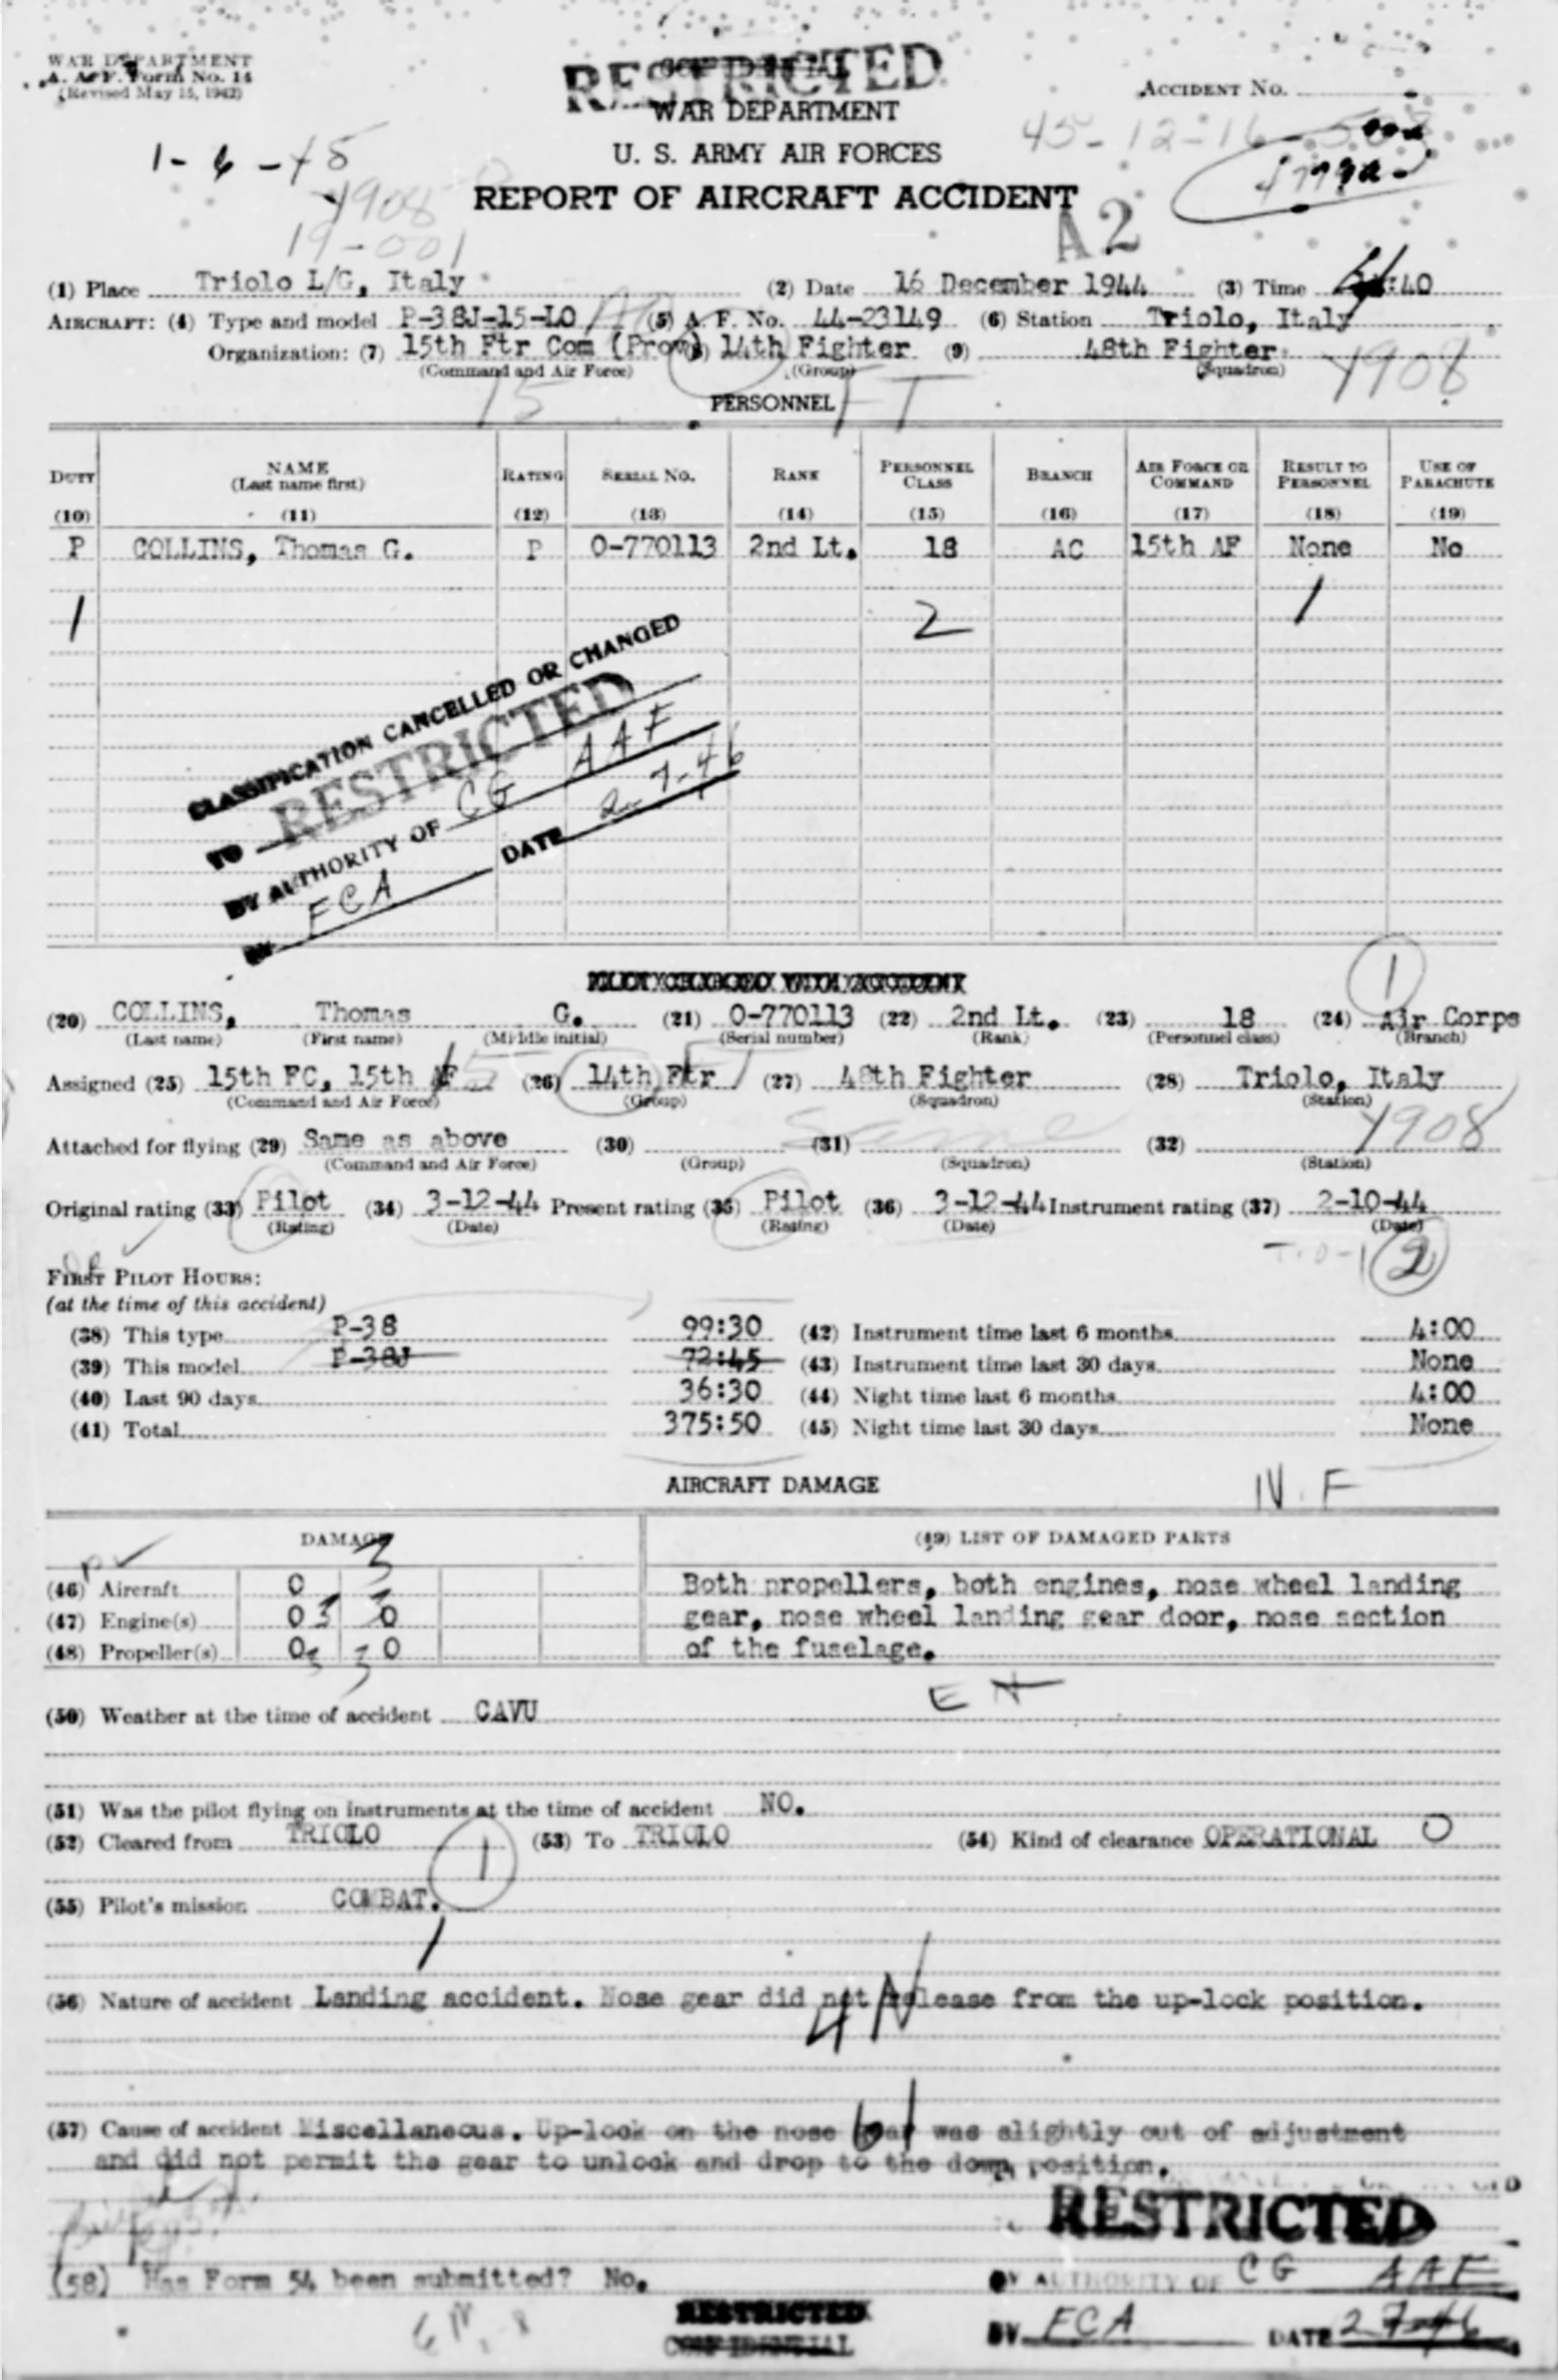 WAR DEPARTMENT
A. A. F. Form No. 14
(Revised May 15, 1942)
RESTRICTED
WAR DEPARTMENT
U. S. ARMY AIR FORCES
REPORT OF AIRCRAFT ACCIDENT
ACCIDENT No.
45-12-16-
1-6-45
Y908
19-001
A2
(1) Place Triolo L/G, Italy (2) Date 16 December 1944 (3) Time :40
AIRCRAFT: (4) Type and model P-38J-15-LO (5) A. F. No. 44-23149 (6) Station Triolo, Italy
Organization: (7) 15th Ftr Com (Prov) 14th Fighter (9) 48th Fighter
(Command and Air Force) (Group) (Squadron) Y908
15 FT
PERSONNEL
DUTY NAME (Last name first) RATING SERIAL No. RANK PERSONNEL CLASS BRANCH AIR FORCE OR COMMAND RESULT TO PERSONNEL USE OF PARACHUTE
(10) (11) (12) (13) (14) (15) (16) (17) (18) (19)
P COLLINS, Thomas G. P O-770113 2nd Lt. 18 AC 15th AF None No
1 2 1
CLASSIFICATION CANCELLED OR CHANGED
TO RESTRICTED
BY AUTHORITY OF CG AAF
BY FCA DATE 2-7-46
PILOT CHARGED WITH ACCIDENT
1
(20) COLLINS, Thomas G. (21) O-770113 (22) 2nd Lt. (23) 18 (24) Air Corps
(Last name) (First name) (Middle initial) (Serial number) (Rank) (Personnel class) (Branch)
Assigned (25) 15th FC, 15th AF (26) 14th Ftr (27) 48th Fighter (28) Triolo, Italy
(Command and Air Force) (Group) (Squadron) (Station)
Attached for flying (29) Same as above (30) (31) Same (32) Y908
(Command and Air Force) (Group) (Squadron) (Station)
Original rating (33) Pilot (34) 3-12-44 Present rating (35) Pilot (36) 3-12-44 Instrument rating (37) 2-10-44
(Rating) (Date) (Rating) (Date) (Date)
2
FIRST PILOT HOURS:
(at the time of this accident)
(38) This type P-38 99:30 (42) Instrument time last 6 months 4:00
(39) This model P-38J 72:45 (43) Instrument time last 30 days None
(40) Last 90 days 36:30 (44) Night time last 6 months 4:00
(41) Total 375:50 (45) Night time last 30 days None
AIRCRAFT DAMAGE N.F
DAMAGE (49) LIST OF DAMAGED PARTS
3
(46) Aircraft O Both propellers, both engines, nose wheel landing
(47) Engine(s) O 3 3 O gear, nose wheel landing gear door, nose section
(48) Propeller(s) O 3 3 O of the fuselage.
(50) Weather at the time of accident CAVU
(51) Was the pilot flying on instruments at the time of accident NO.
(52) Cleared from TRIOLO (53) To TRIOLO (54) Kind of clearance OPERATIONAL O
1
(55) Pilot's mission COMBAT.
1
(56) Nature of accident Landing accident. Nose gear did not release from the up-lock position.
4N
(57) Cause of accident Miscellaneous. Up-lock on the nose gear was slightly out of adjustment
and did not permit the gear to unlock and drop to the down position.
RESTRICTED
(58) Has Form 54 been submitted? No.
BY AUTHORITY OF CG AAF
RESTRICTED
BY FCA DATE 2-7-46
CONFIDENTIAL